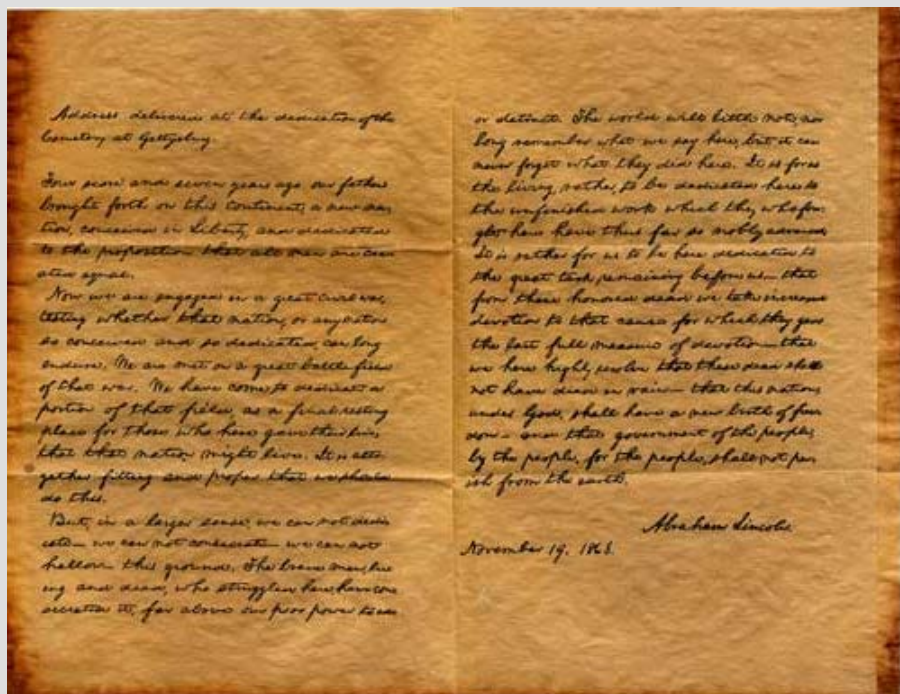 Address delivered at the dedication of the
Cemetery at Gettysburg.
Four score and seven years ago our fathers
brought forth on this continent, a new na-
tion, conceived in Liberty, and dedicated
to the proposition that all men are cre-
ated equal.
Now we are engaged in a great civil war,
testing whether that nation, or any nation
so conceived and so dedicated, can long
endure. We are met on a great battle-field
of that war. We have come to dedicate a
portion of that field, as a final resting
place for those who here gave their lives
that that nation might live. It is alto-
gether fitting and proper that we should
do this.
But, in a larger sense, we can not dedi-
cate— we can not consecrate— we can not
hallow— this ground. The brave men, liv-
ing and dead, who struggled here, have con-
secrated it, far above our poor power to add
or detract. The world will little note, nor
long remember what we say here, but it can
never forget what they did here. It is for us
the living, rather, to be dedicated here to
the unfinished work which they who fou-
ght here have thus far so nobly advanced.
It is rather for us to be here dedicated to
the great task remaining before us— that
from these honored dead we take increased
devotion to that cause for which they gave
the last full measure of devotion— that
we here highly resolve that these dead shall
not have died in vain— that this nation,
under God, shall have a new birth of free-
dom— and that government of the people,
by the people, for the people, shall not per-
ish from the earth.
Abraham Lincoln.
November 19. 1863.